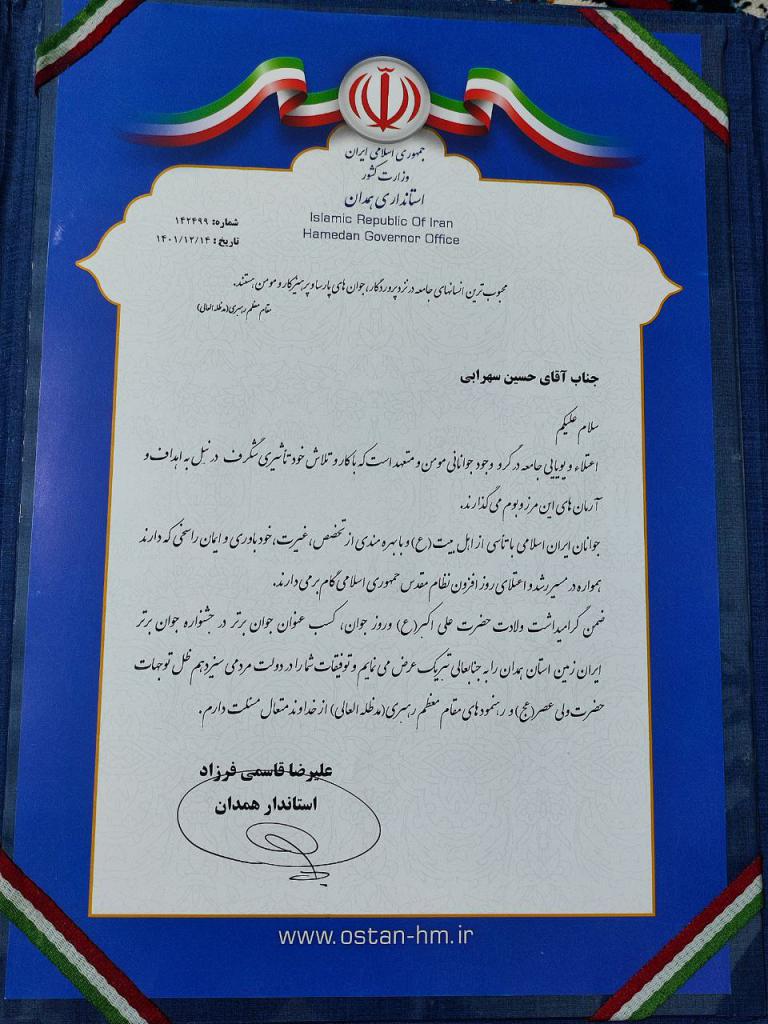 جمهوری اسلامی ایران
وزارت کشور
استانداری همدان
Islamic Republic Of Iran
Hamedan Governor Office
شماره: ۱۴۲۴۹۹
تاریخ: ۱۴۰۱/۱۲/۱۴
محبوب ترین انسانهای جامعه در نزد پروردگار، جوان های پارسا و پرهیزکار و مومن هستند.
مقام معظم رهبری(مدظله العالی)
جناب آقای حسین سهرابی
سلام علیکم
اعتلاء و پویایی جامعه در گرو وجود جوانانی مومن و متعهد است که با کار و تلاش خود تأثیری شگرف در نیل به اهداف و
آرمان های این مرز و بوم می گذارند.
جوانان ایران اسلامی با تأسی از اهل بیت(ع) و با بهره مندی از تخصص، غیرت، خودباوری و ایمان راسخی که دارند
همواره در مسیر رشد و اعتلای روز افزون نظام مقدس جمهوری اسلامی گام برمی دارند.
ضمن گرامیداشت ولادت حضرت علی اکبر(ع) وروز جوان، کسب عنوان جوان برتر در جشنواره جوان برتر
ایران زمین استان همدان را به جنابعالی تبریک عرض می نمایم و توفیقات شما را در دولت مردمی سیزدهم ظل توجهات
حضرت ولی عصر(عج) و رهنمودهای مقام معظم رهبری(مدظله العالی) از خداوند متعال مسئلت دارم.
علیرضا قاسمی فرزاد
استاندار همدان
www.ostan-hm.ir